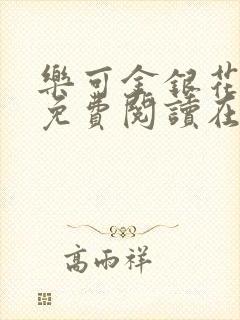 樂可金銀花
免費閱讀在
高雨祥